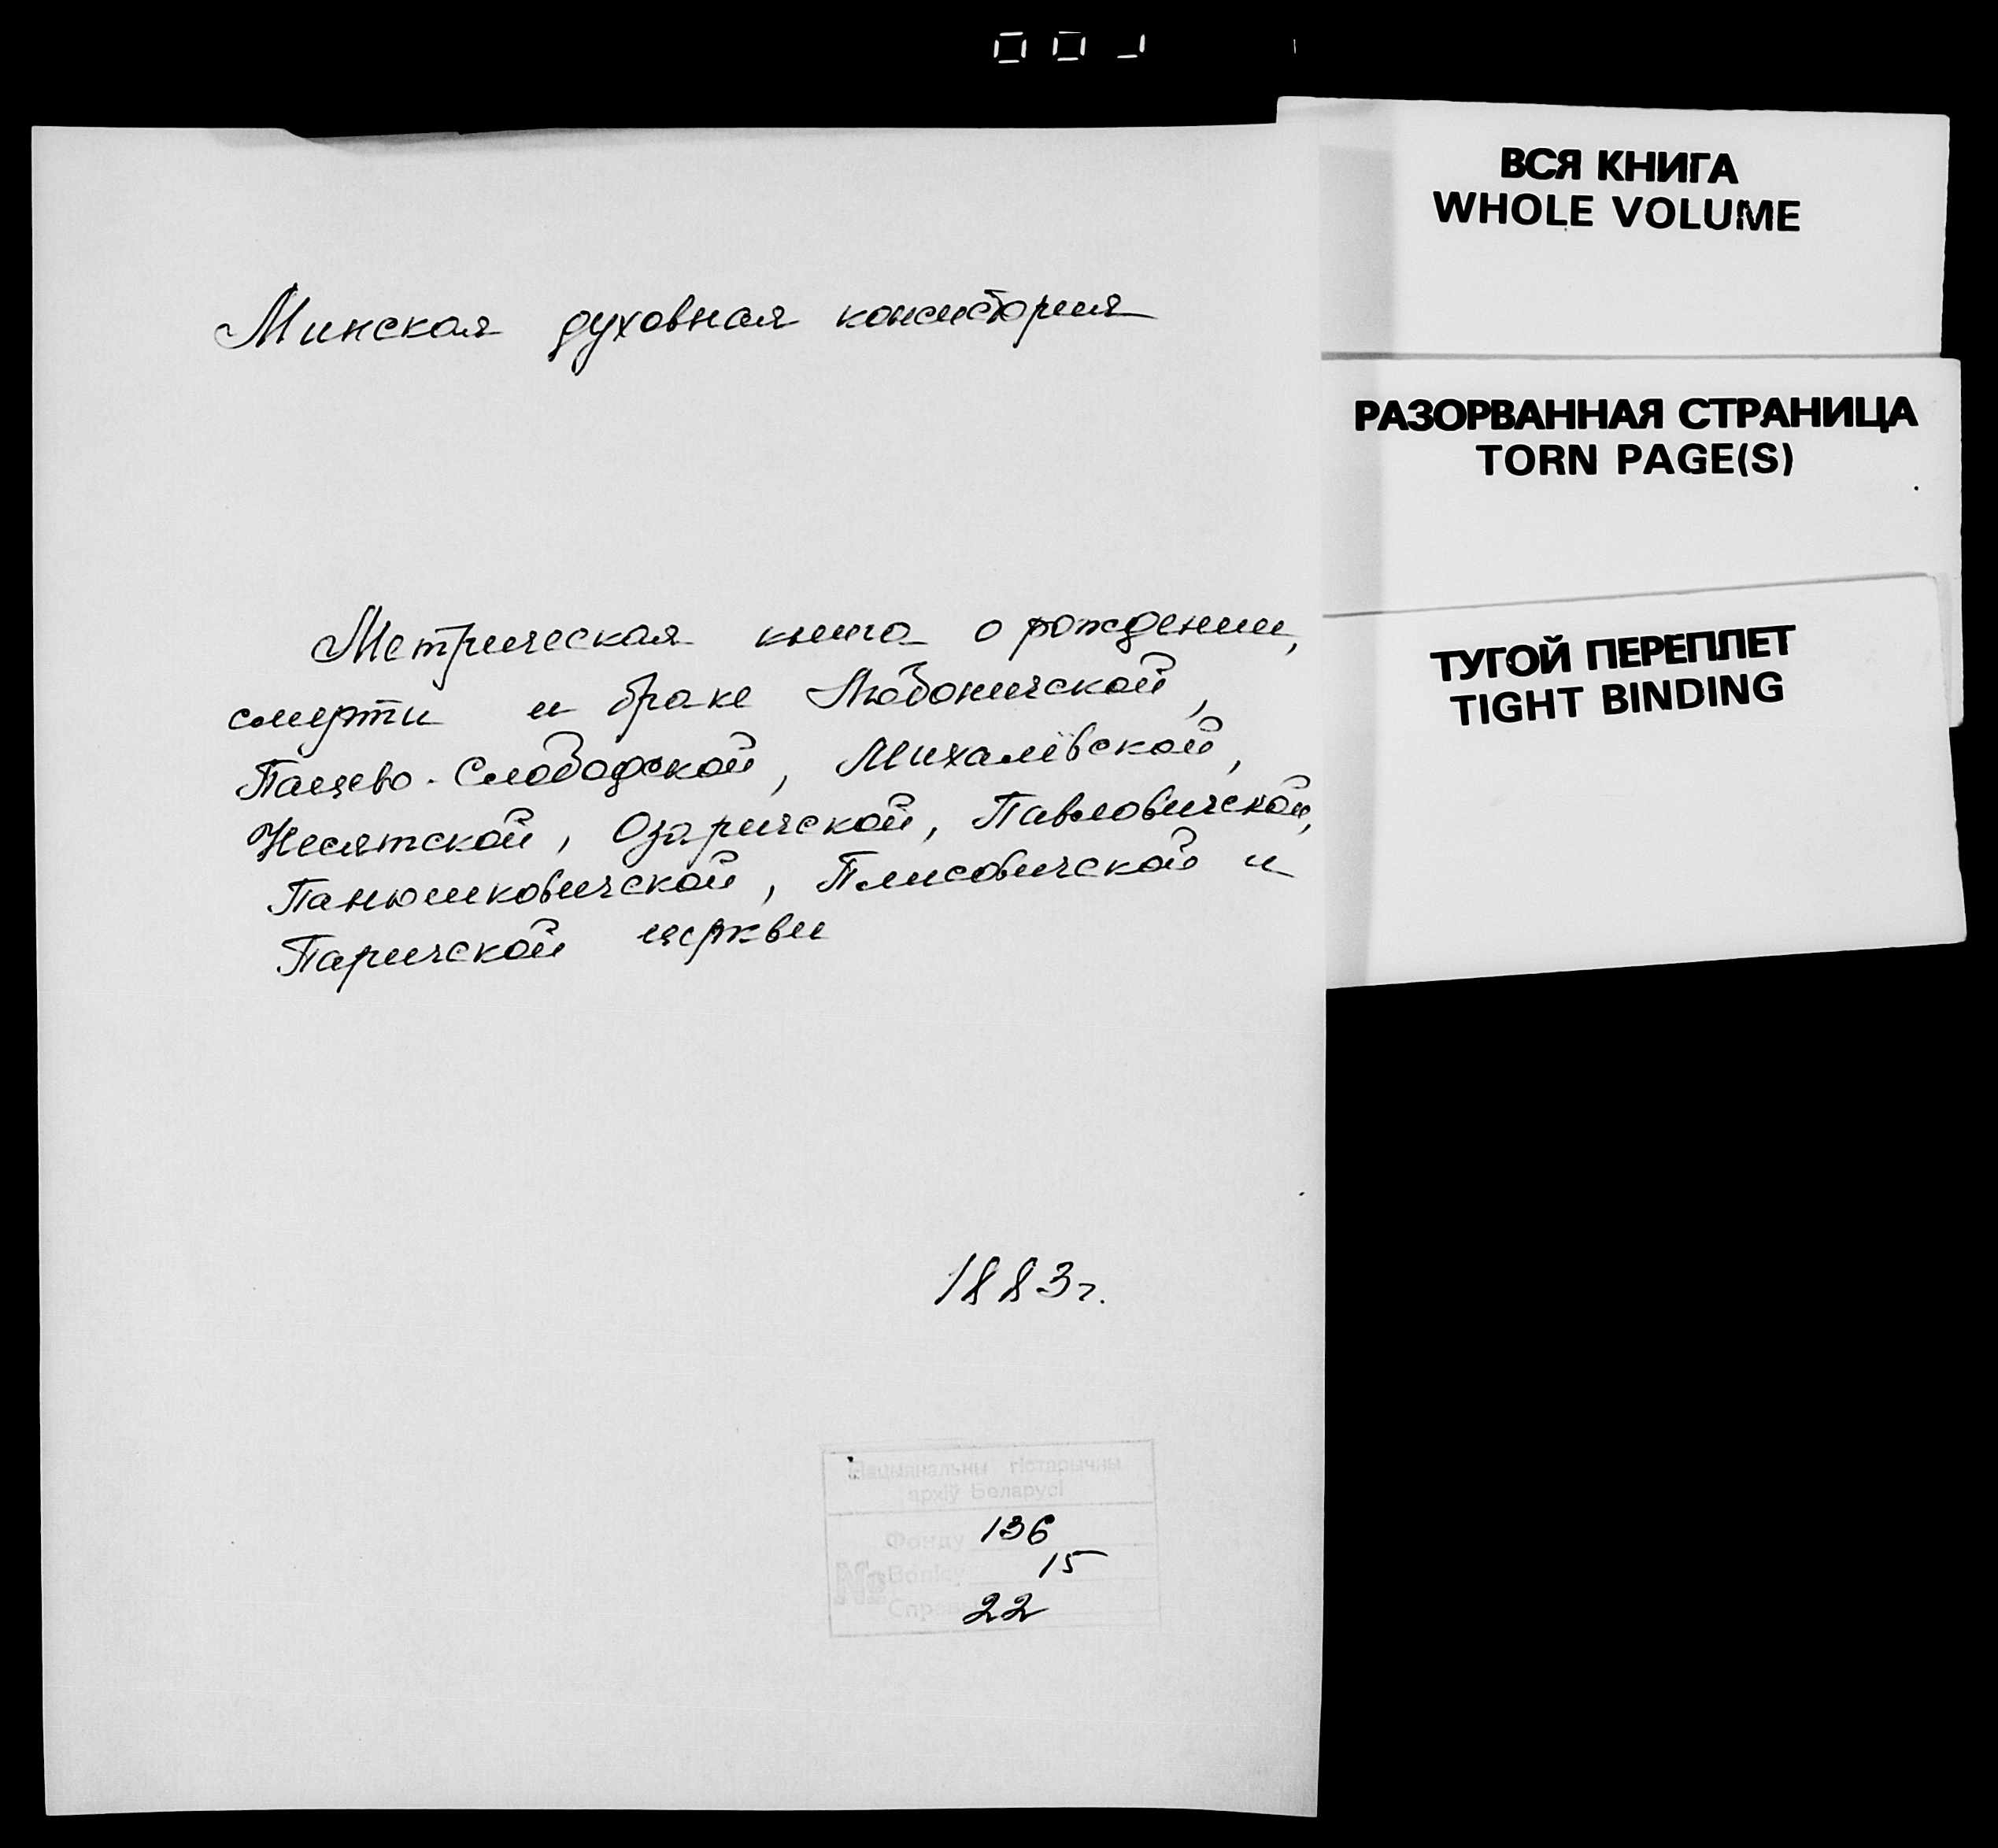 Минская духовная консистория
Метрическая книга о рождении,
смерти и браке Любоничской,
Пацево-Слободской, Михалёвской,
Несятской, Озаричской, Павловичской,
Панюшковичской, Плисовичской и
Паричской церкви
1883г.
Нацыянальны гістарычны
архіў Беларусі
Фонду 136
№ Вопісу 15
Справы 22
ВСЯ КНИГА
WHOLE VOLUME
РАЗОРВАННАЯ СТРАНИЦА
TORN PAGE(S)
ТУГОЙ ПЕРЕПЛЕТ
TIGHT BINDING